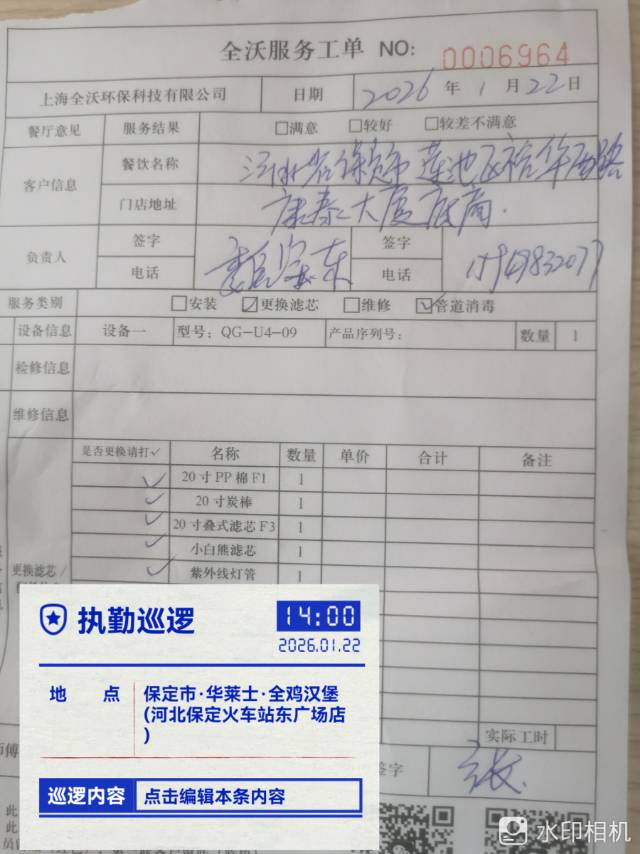 全沃服务工单 NO: 0006964
上海全沃环保科技有限公司 日期 2026 年 1 月 22 日
餐厅意见 服务结果 □满意 □较好 □较差不满意
客户信息 餐饮名称 河北省保定市莲池区裕华西路
门店地址 康泰大厦底商.
负责人 签字 签字
电话 电话
服务类别 □安装 ☑更换滤芯 □维修 ☑管道消毒
设备信息 设备一 型号: QG-U4-09 产品序列号: 数量 1
检修信息
维修信息
是否更换请打✓ 名称 数量 单价 合计 备注
✓ 20寸PP棉F1 1
✓ 20寸炭棒 1
✓ 20寸叠式滤芯F3 1
✓ 小白熊滤芯 1
更换滤芯/ ✓ 紫外线灯管 1
执勤巡逻 14:00
2026.01.22
地 点 保定市·华莱士·全鸡汉堡
(河北保定火车站东广场店
)
巡逻内容 点击编辑本条内容
实际工时
签字
水印相机